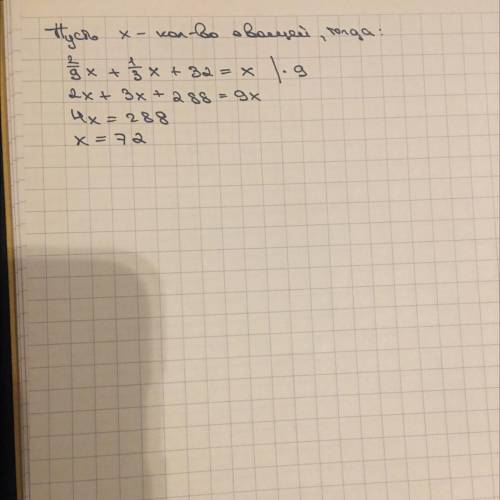 Пусть x - кол-во овощей, тогда:
2/9x + 1/3x + 32 = x | · 9
2x + 3x + 288 = 9x
4x = 288
x = 72